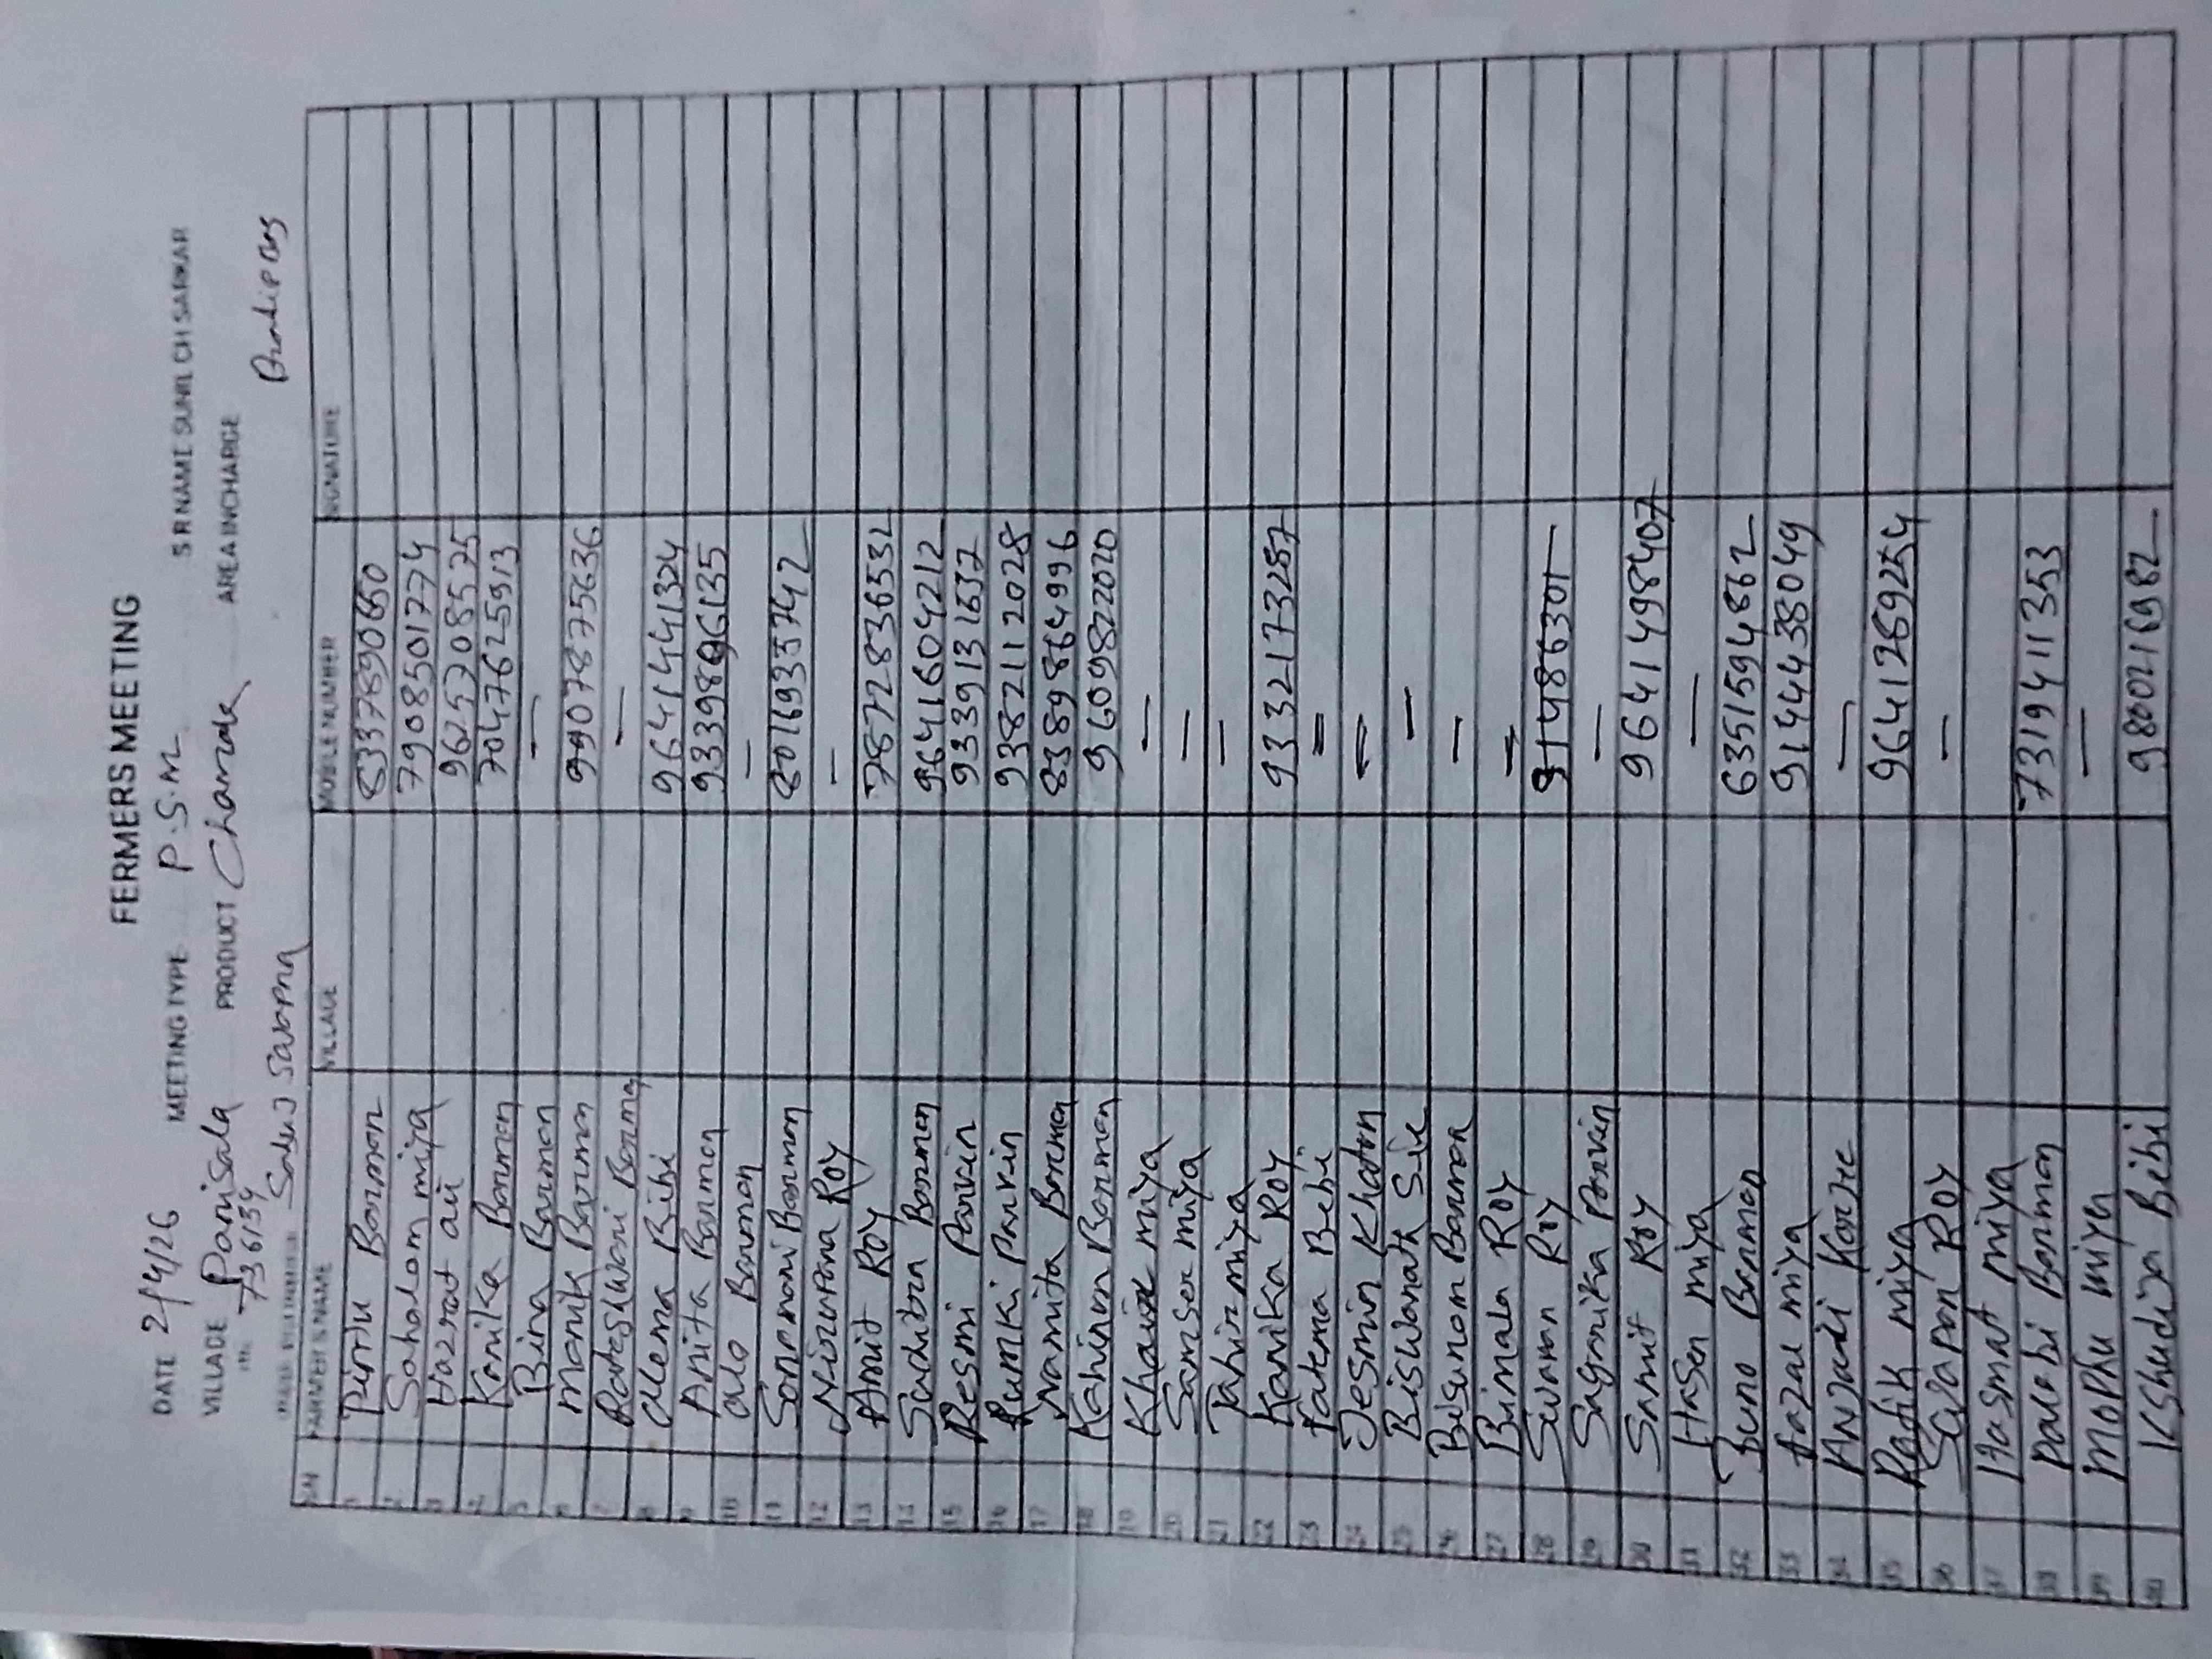 FERMERS MEETING
DATE 2/4/26 MEETING TYPE P.S.M SR NAME SUNIL CH SARKAR
VILLAGE Panisala PRODUCT Chamak AREA INCHARGE
736134 Pradip Das
SN FARMER'S NAME VILLAGE MOBILE NUMBER SIGNATURE
1 Pintu Barman 8337890650
2 Sahalom miya 7908501774
3 Hazrat ali 9625708575
4 Konika Barman 7047625913
5 Bina Barman —
6 Manik Barman 9907875636
7 Rateswari Barman —
8 Alema Bibi 9641441324
9 Anita Barman
10 Alo Barman —
11 Sonamani Barman 8016935742
12 Niroupana Roy —
13 Amit Roy 7872836532
14 Suchitra Barman 9641604212
15 Resmi Parvin 9339131637
16 Rumki Parvin 9382112028
17 Namita Barman 8389864996
18 Kahinur Barman 9609822020
19 miya —
20 Samser miya —
21 Tahir miya —
22 Kanika Roy 9332173287
23 Fatema Bebi =
24 Jesmin Khaton =
25 Biswanath —
26 Barman —
27 Bimala Roy —
28 Suman Roy 91486301
29 Sagnika Parvin —
30 Samit Roy 9641498407
31 Hasen miya —
32 Barman 6351594862
33 fazal miya 9144438049
34 Anjali —
35 Rafik miya 9641289254
36 Swapan Roy —
37 Hasmat miya
38 Barman 7319411353
39 Mophu miya —
40 Kshudija Bibi 9800216982